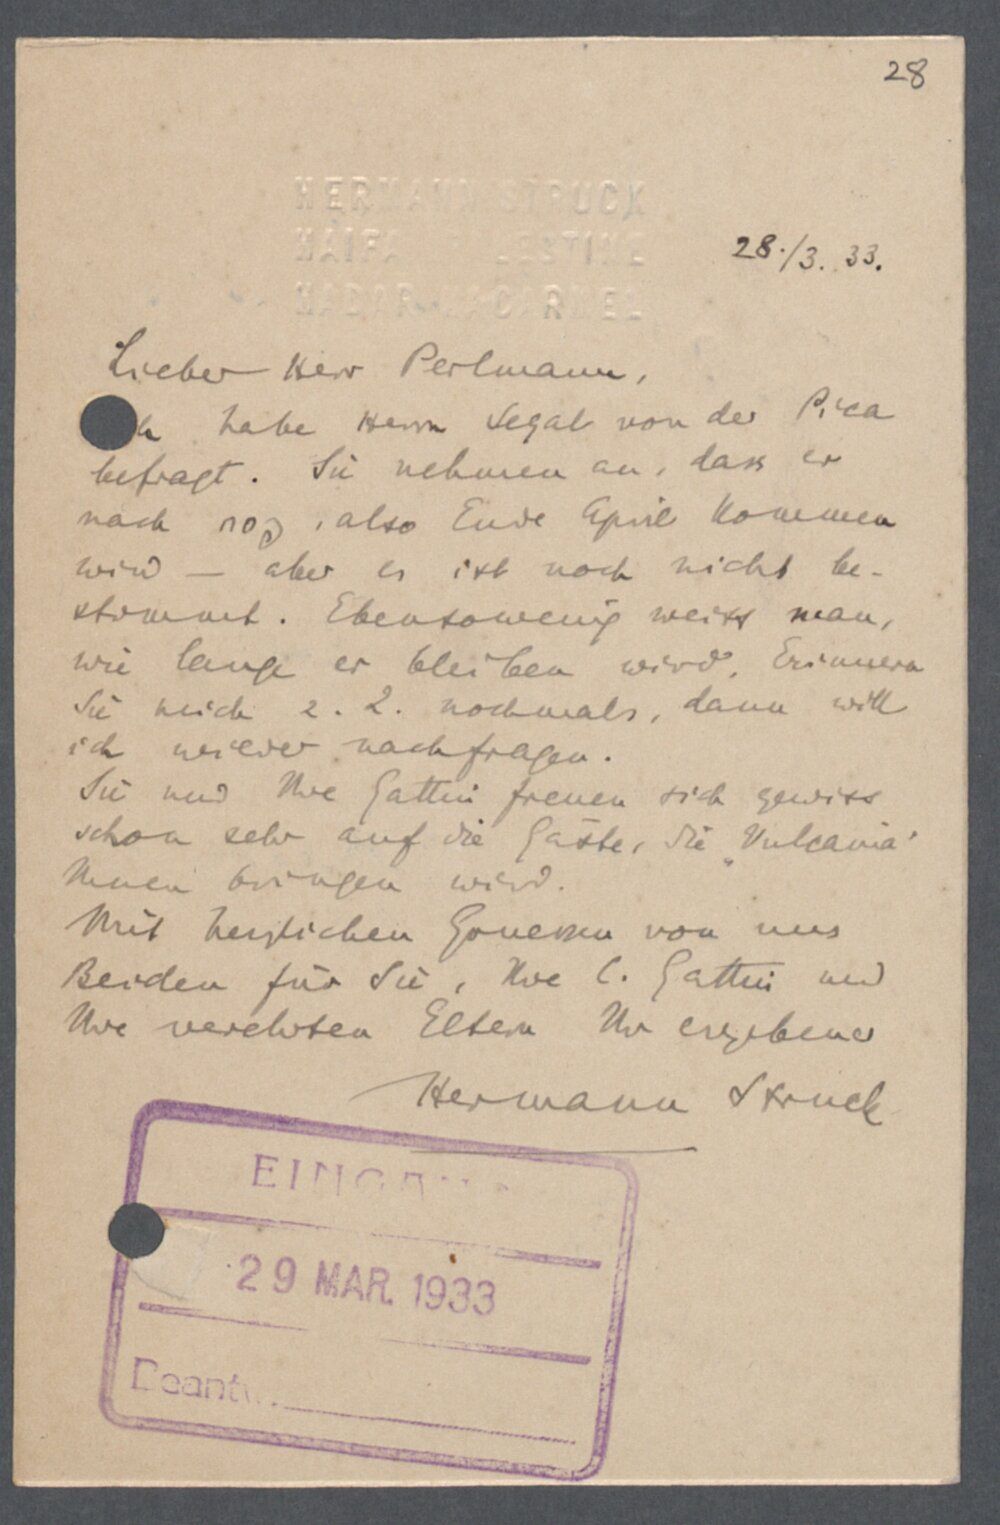 28
HERMANN STRUCK
HAIFA PALESTINE
HADAR HACARMEL
28./3. 33.
Lieber Herr Perlmann,
habe Herrn Segal von der Pica
befragt. Sie nehmen an, dass er
nach פסח, also Ende April kommen
wird — aber es ist noch nicht be-
stimmt. Ebensowenig weiss man,
wie lange er bleiben wird. Erinnern
Sie mich z. Z. nochmals, dann will
ich wieder nachfragen.
Sie und Ihre Gattin freuen sich gewiss
schon sehr auf die Gäste, die „Vulcania"
Ihnen bringen wird.
Mit herzlichen Gruessen von uns
Beiden für Sie, Ihre l. Gattin und
Ihre verehrten Eltern Ihr ergebener
Hermann Struck
EINGANG
29 MAR. 1933
Beantw.